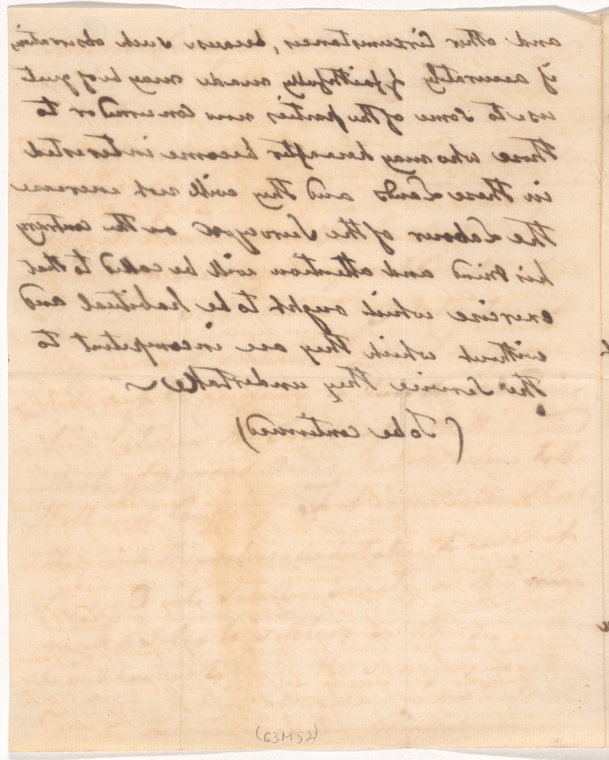 and other Circumstances, because such observations
if accurately & faithfully made may be of great
use to some of the parties now concerned or to
those who may hereafter become interested
in these Lands and they will not increase
the Labour of the Surveyor on the contrary
his Mind and attention will be called to that
exercise which ought to be habitual and
without which they are incompetent to
the Service they undertake
(To be continued)
(63M92)